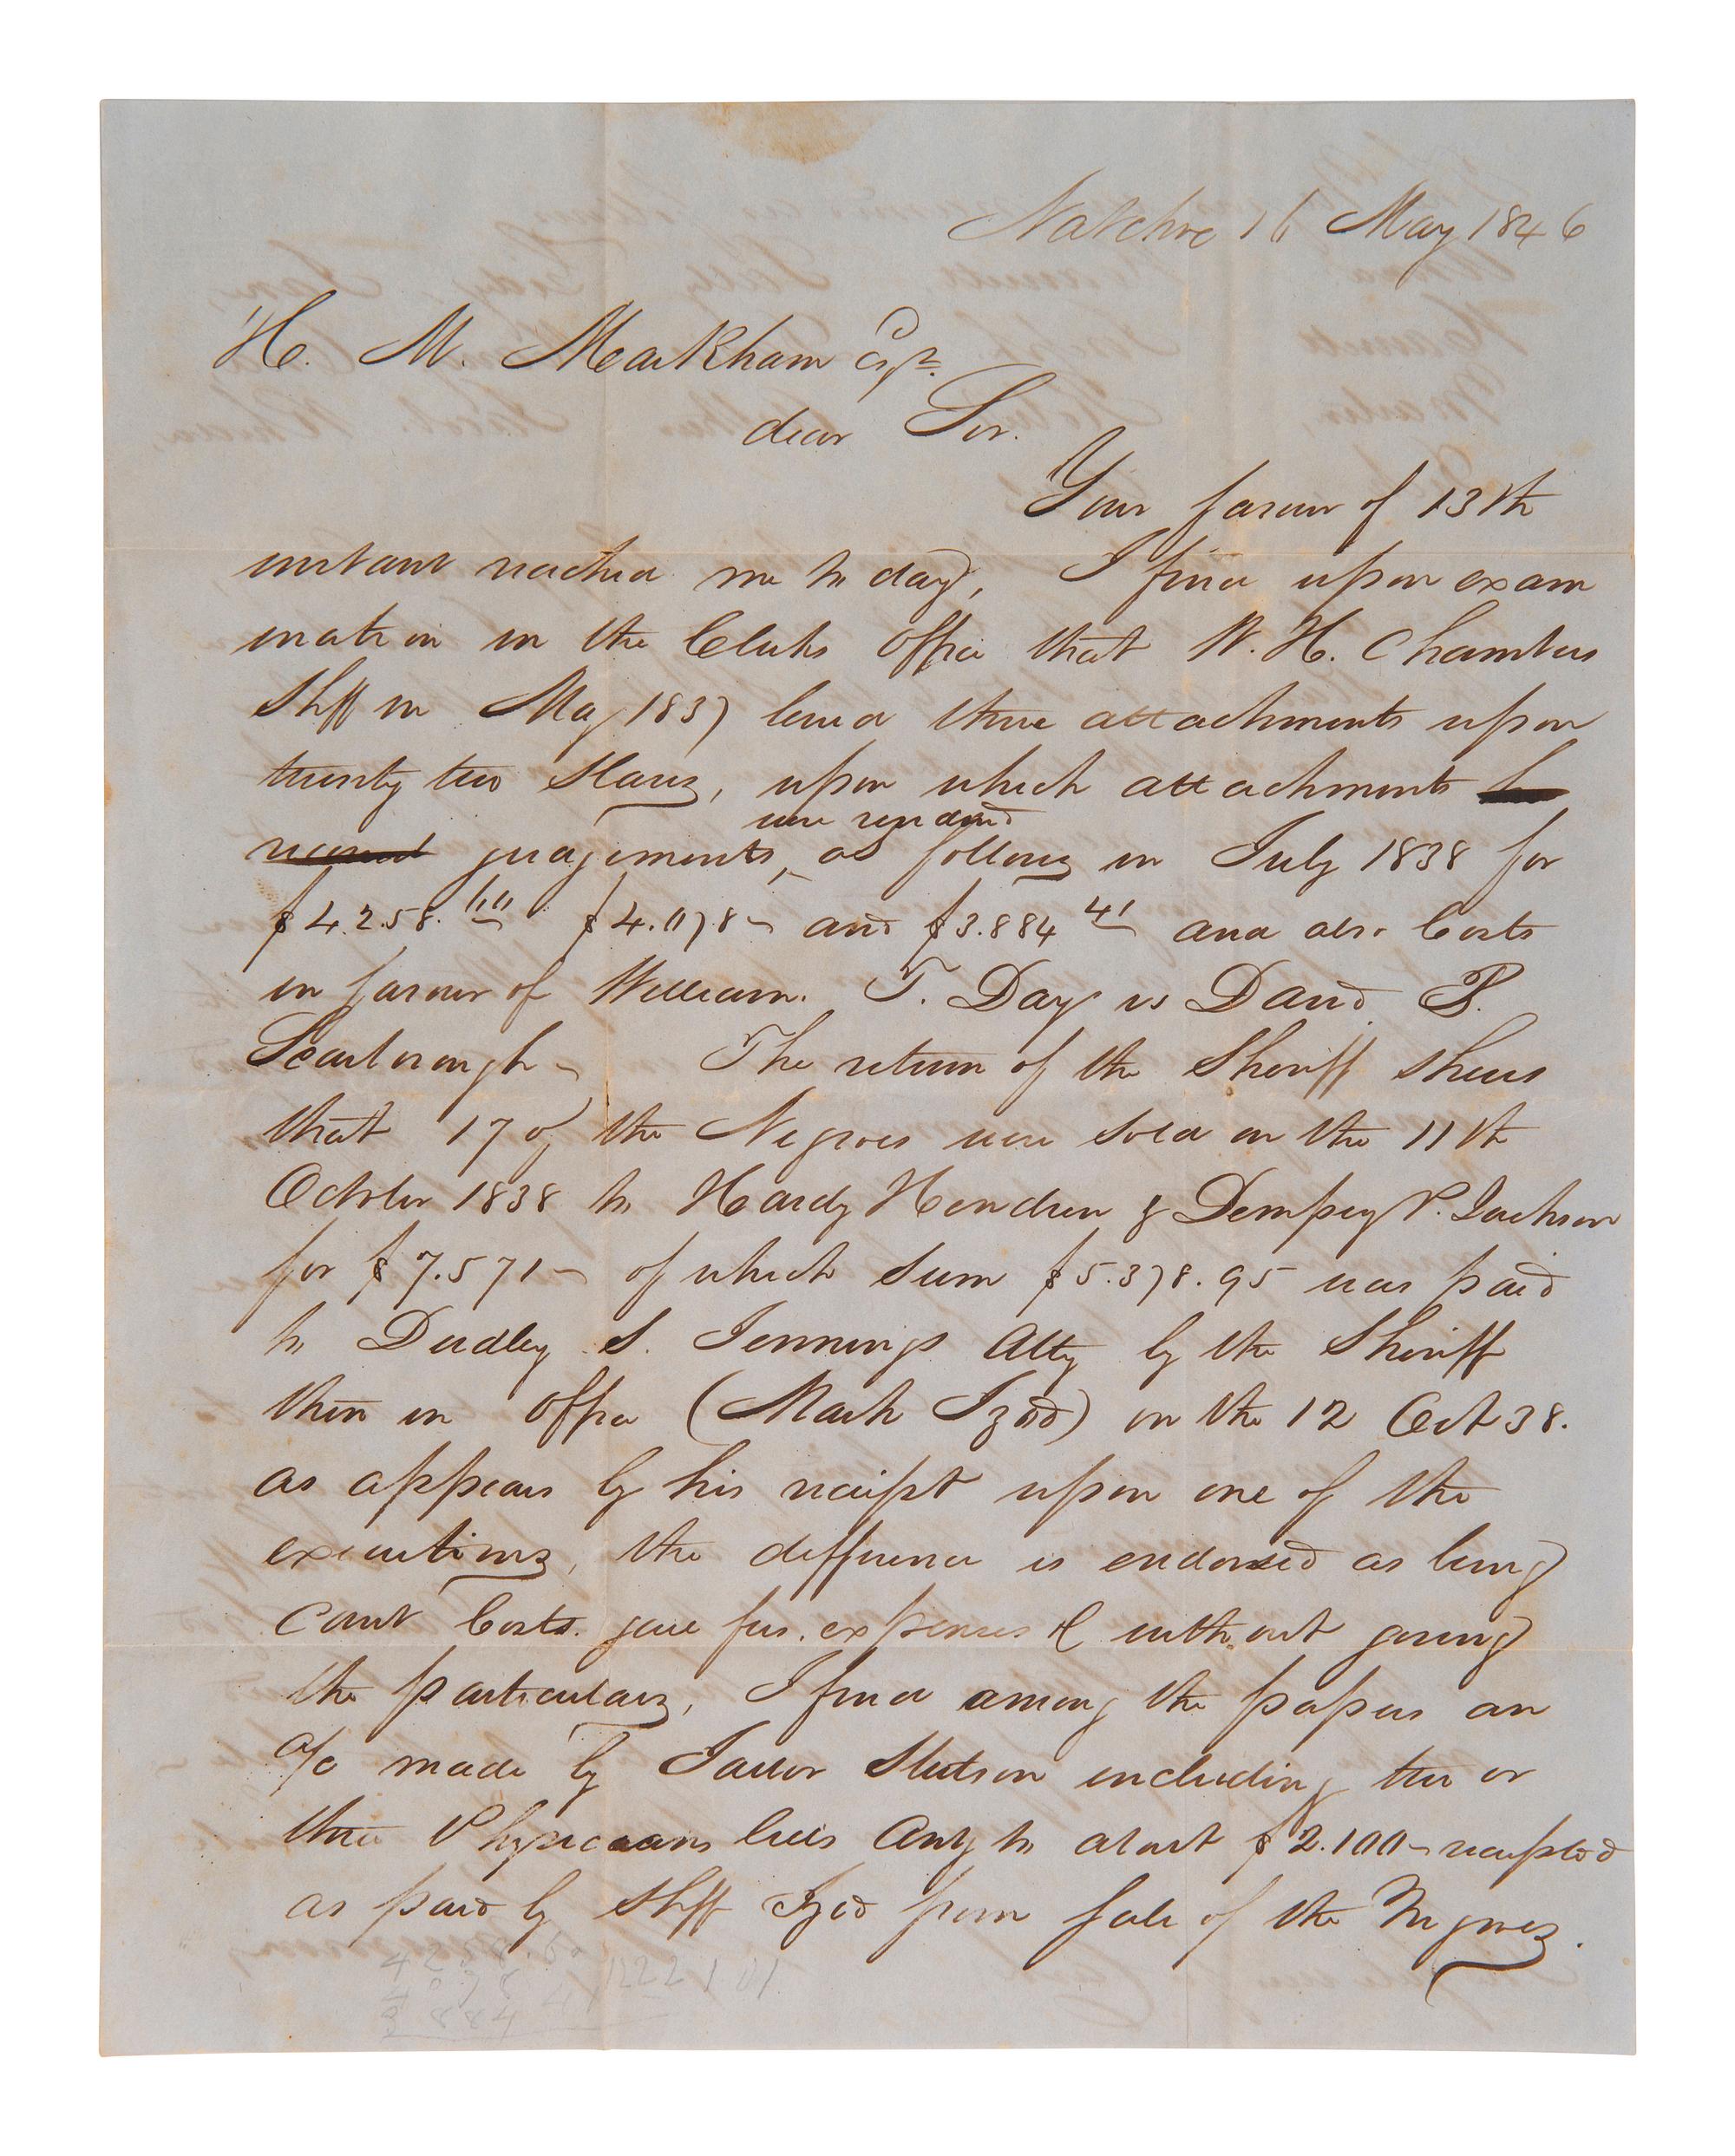 Natchez 16 May 1846
H. M. Markham Esqr.
dear Sir.
Your favour of 13th
instant reached me to day, I find upon exam
ination in the Clerks Office that W. H. Chambers
Shff in May 1837 levied three attachments upon
twenty two slaves, upon which attachments
were rendered
judgements, as follows in July 1838 for
$4.258. $4.078- and $3.884 41 and also Costs
in favour of William. T. Day vs David B.
Scarborough - The return of the Sheriff shews
that 17 of the Negroes were sold on the 11th
October 1838 to Hardy Hendren & Dempsey P. Jackson
for $7.571- of which sum $5.378.95 was paid
to Dudley S. Jennings Atty by the Sheriff
then in office (Mark Izod) on the 12 Oct 38.
as appears by his receipt upon one of the
executions, the difference is endorsed as being
Court Costs. jail fees. expenses & without giving
the particulars, I find among the papers an
a/c made by Jailor Stetson including two or
three Physicians bills Amtg to about $2.100- receipted
as paid by Shff Izod from sale of the Negroes.
4258.60
4078 12221 01
3884 41